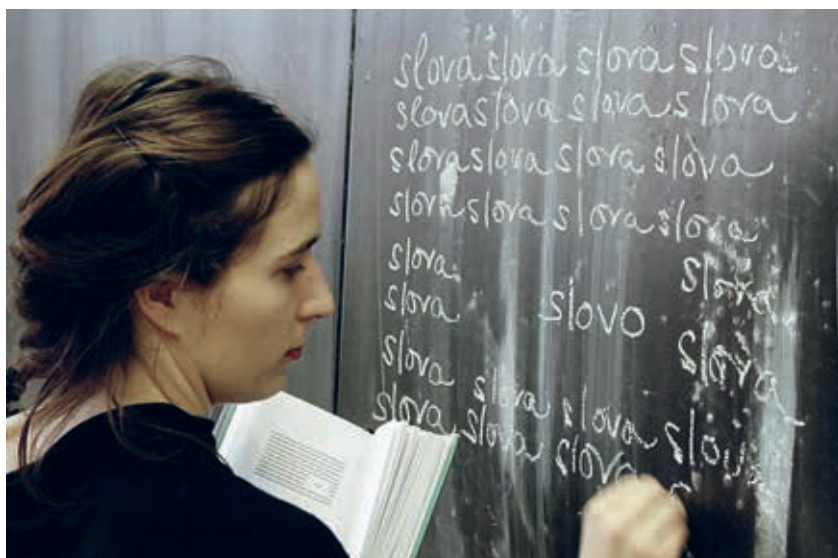 slova slova slova slova
slova slova slova slova
slova slova slova slova
slova slova slova slova
slova slova
slova slovo slova
slova slova slova slova
slova slova slova slova